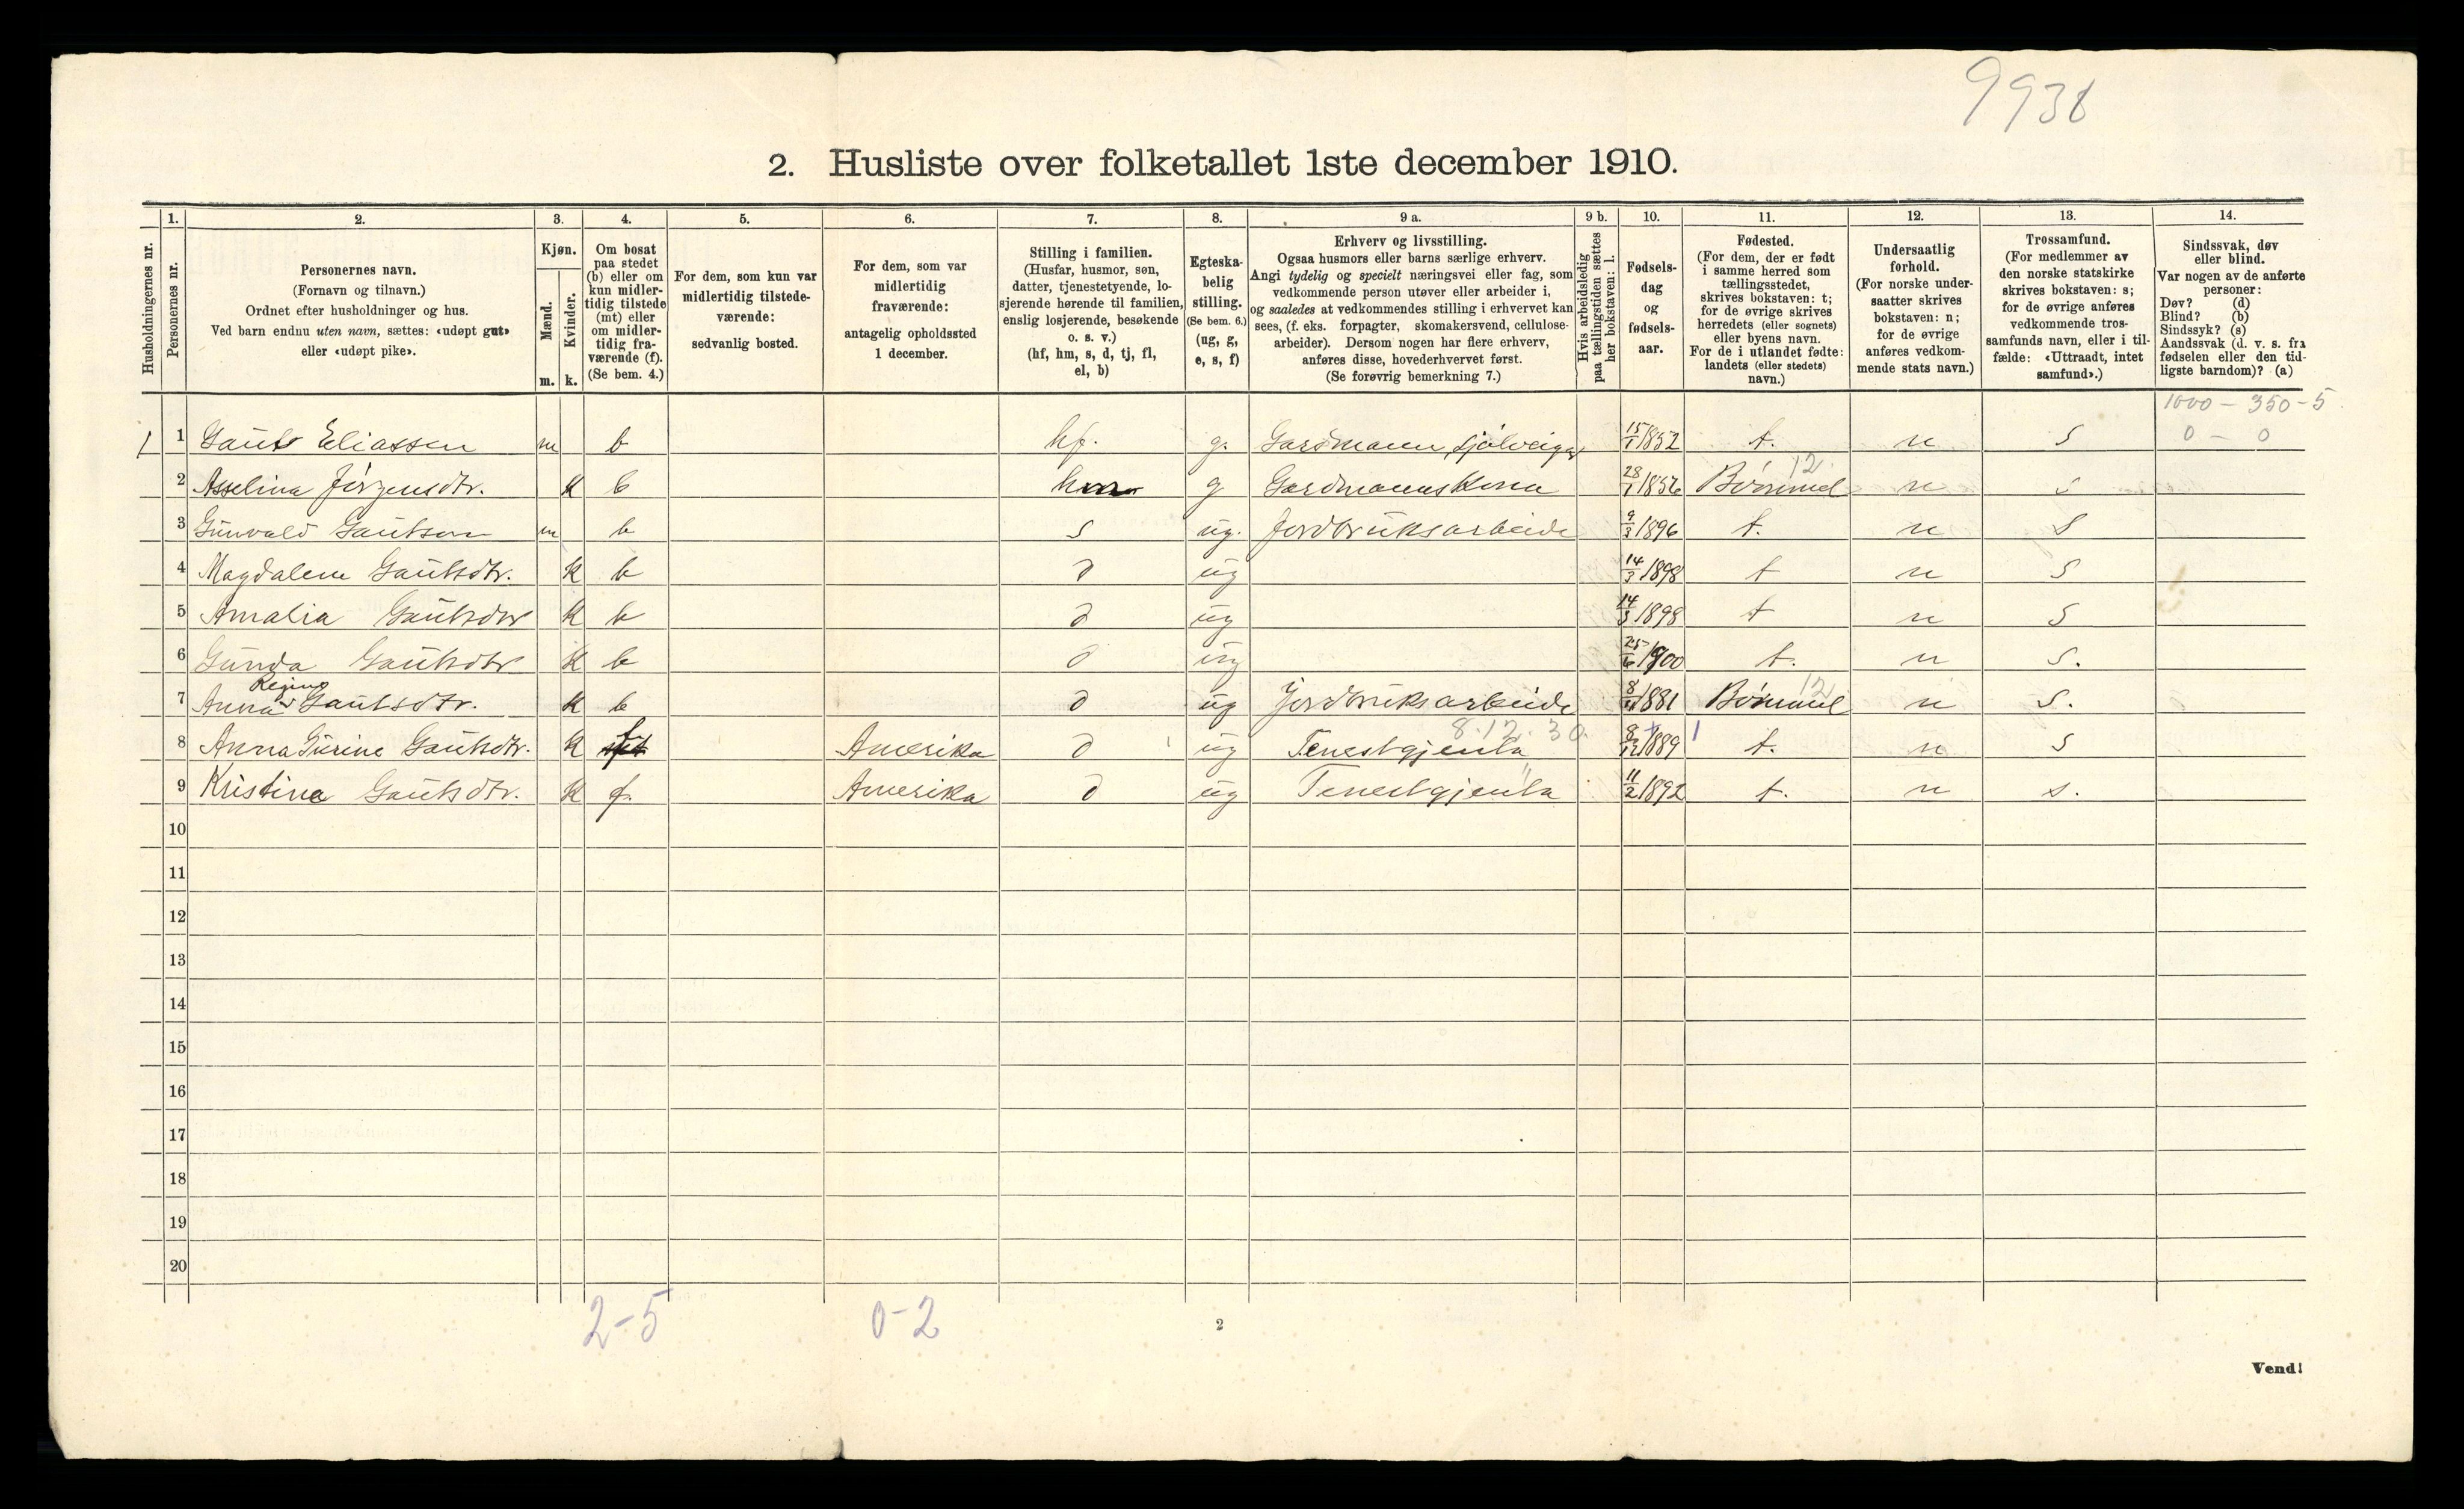 9938
2. Husliste over folketallet 1ste december 1910.
Husholdningernes nr.
1.
Personernes nr.
2.
Personernes navn.
(Fornavn og tilnavn.)
Ordnet efter husholdninger og hus.
Ved barn endnu uten navn, sættes: «udøpt gut»
eller «udøpt pike».
3.
Kjøn.
Mænd.
m.
Kvinder.
k.
4.
Om bosat
paa stedet
(b) eller om
kun midler-
tidig tilstede
(mt) eller
om midler-
tidig fra-
værende (f).
(Se bem. 4.)
5.
For dem, som kun var
midlertidig tilstede-
værende:
sedvanlig bosted.
6.
For dem, som var
midlertidig
fraværende:
antagelig opholdssted
1 december.
7.
Stilling i familien.
(Husfar, husmor, søn,
datter, tjenestetyende, lo-
sjerende hørende til familien,
enslig losjerende, besøkende
o. s. v.)
(hf, hm, s, d, tj, fl,
el, b)
8.
Egteska-
belig
stilling.
(Se bem. 6.)
(ug, g,
e, s, f)
9 a.
Erhverv og livsstilling.
Ogsaa husmors eller barns særlige erhverv.
Angi tydelig og specielt næringsvei eller fag, som
vedkommende person utøver eller arbeider i,
og saaledes at vedkommendes stilling i erhvervet kan
sees, (f. eks. forpagter, skomakersvend, cellulose-
arbeider). Dersom nogen har flere erhverv,
anføres disse, hovederhvervet først.
(Se forøvrig bemerkning 7.)
9 b.
Hvis arbeidsledig
paa tællingstiden sættes
her bokstaven: l.
10.
Fødsels-
dag
og
fødsels-
aar.
11.
Fødested.
(For dem, der er født
i samme herred som
tællingsstedet,
skrives bokstaven: t;
for de øvrige skrives
herredets (eller sognets)
eller byens navn.
For de i utlandet fødte:
landets (eller stedets)
navn.)
12.
Undersaatlig
forhold.
(For norske under-
saatter skrives
bokstaven: n;
for de øvrige
anføres vedkom-
mende stats navn.)
13.
Trossamfund.
(For medlemmer av
den norske statskirke
skrives bokstaven: s;
for de øvrige anføres
vedkommende tros-
samfunds navn, eller i til-
fælde: «Uttraadt, intet
samfund».)
14.
Sindssvak, døv
eller blind.
Var nogen av de anførte
personer:
Døv? (d)
Blind? (b)
Sindssyk? (s)
Aandssvak (d. v. s. fra
fødselen eller den tid-
ligste barndom)? (a)
1000 - 350 - 5
1 1 Gaut Eliassen m b hf. g. Gardmann, sjølveigar 15/1 1852 t. n s 0 - 0
12
2 Asselina Jörgensdtr. k b hm g Gardmannskona 28/1 1856 Bömmel n s
3 Gunvald Gautson m b s ug. Jordbruksarbeide 9/3 1896 t. n s
4 Magdalena Gautsdtr. k b d ug 14/3 1898 t n s
5 Amalia Gautsdtr k b d ug 14/3 1898 t n s
6 Gunda Gautsdtr k b d ug 25/6 1900 t. n s.
Regine 12
7 Anna Gautsdtr. k b d ug Jordbruksarbeide 1881 Bömmel n s.
8.12.30.
8 Anna Gurine Gautsdtr. k f Amerika d ug Tenestgjenta 8/12 1889 t. n s
9 Kristina Gautsdtr. k f. Amerika d ug Tenestgjenta 11/2 1892 t. n s.
10
11
12
13
14
15
16
17
18
19
20
2-5 0-2
2
Vend!